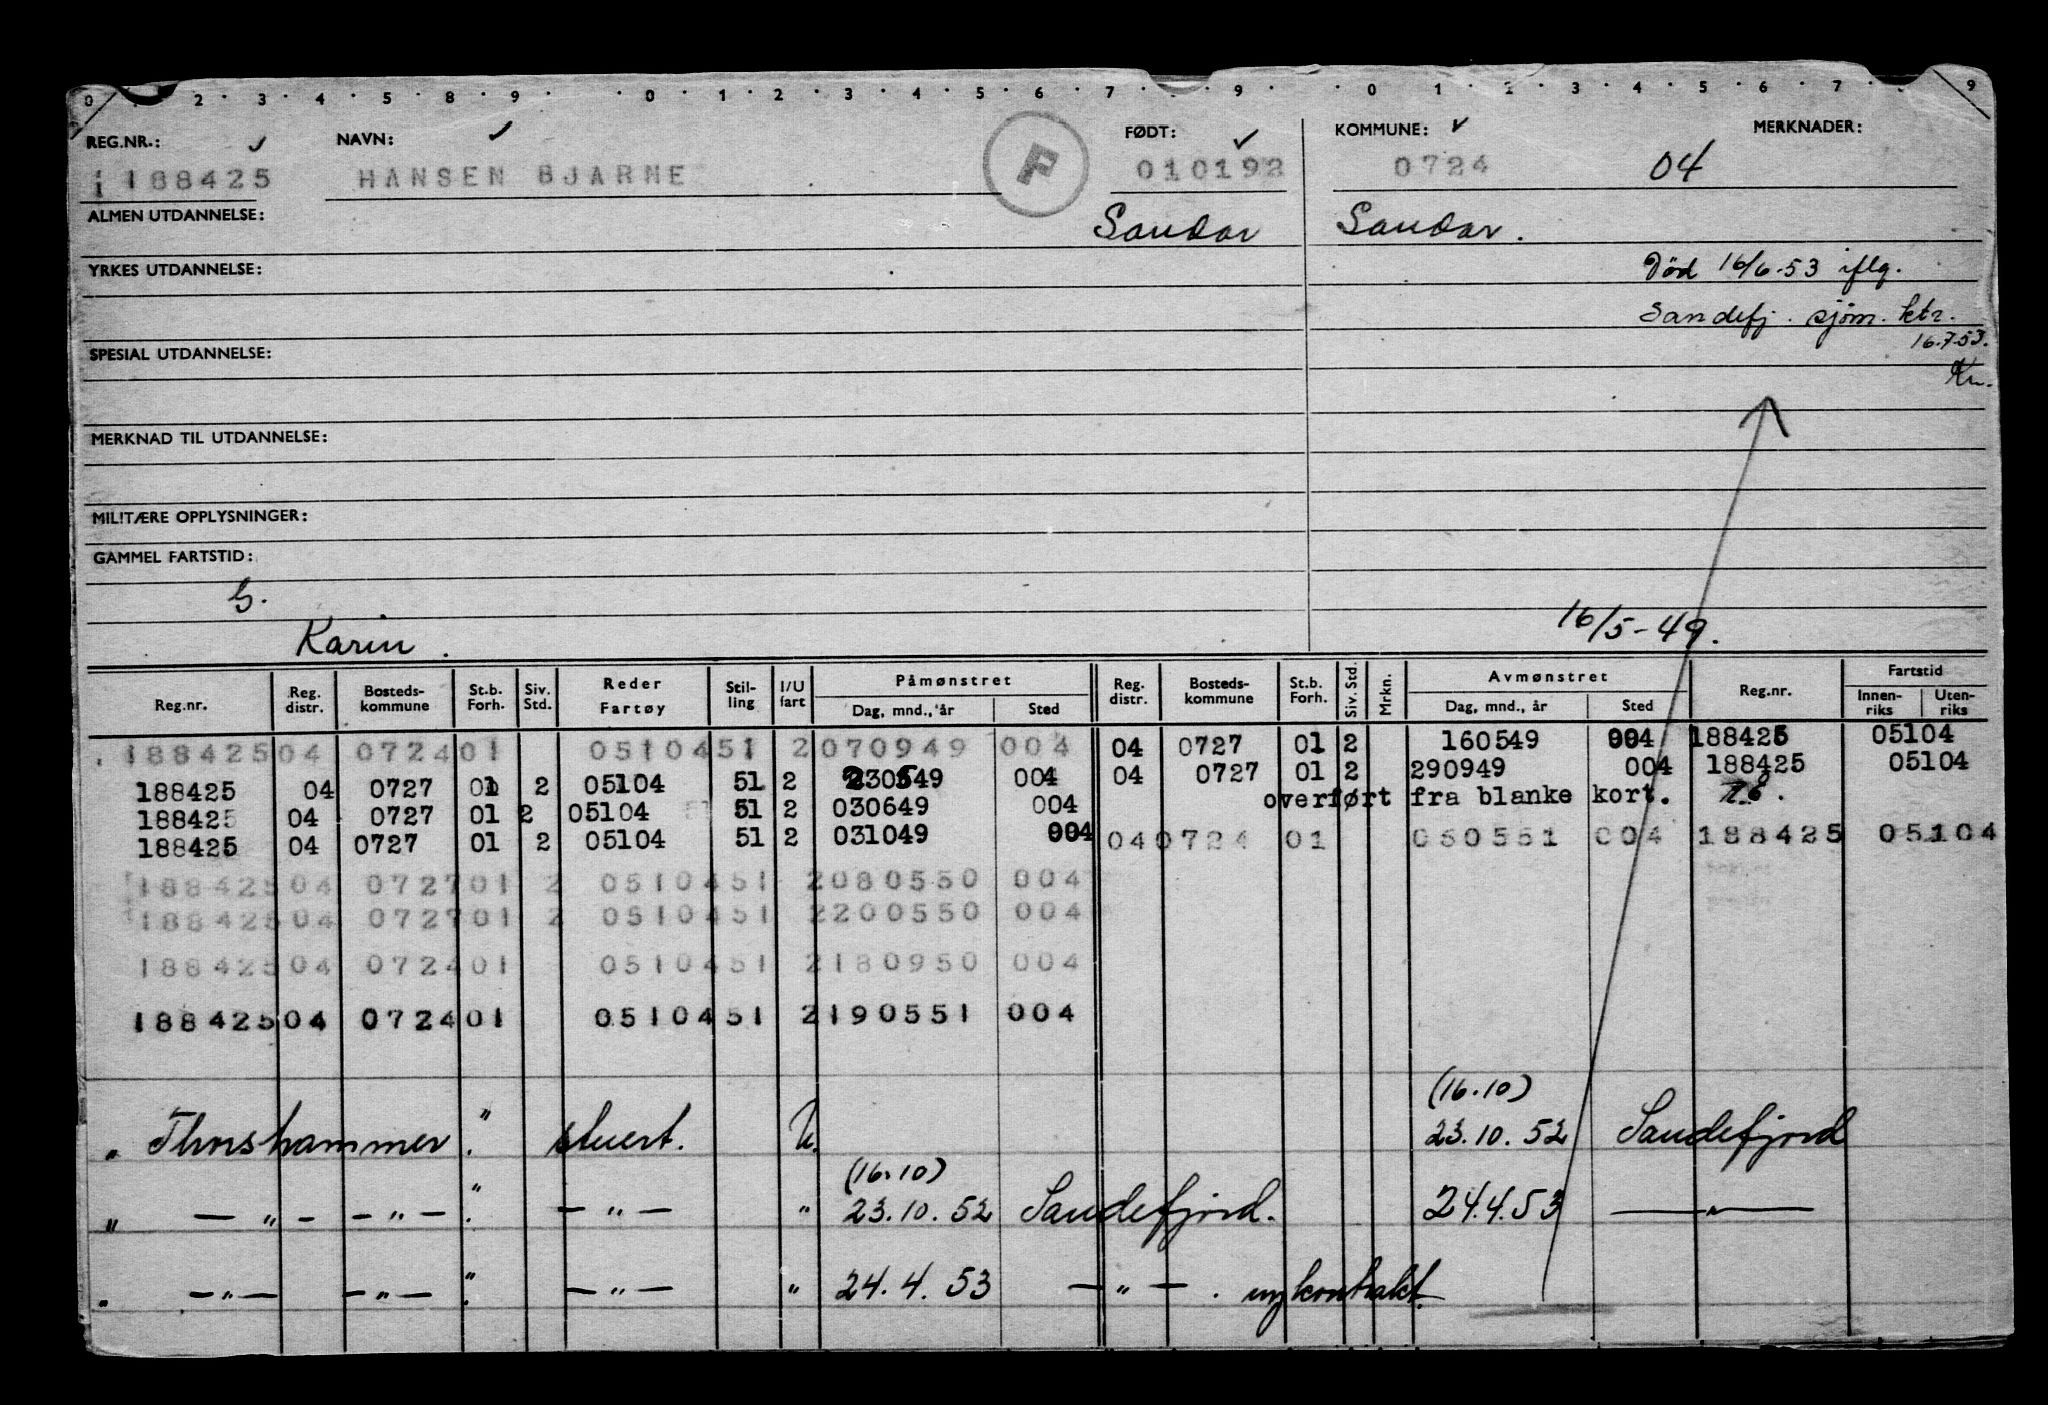 0 2 3 4 5 8 9 0 1 2 3 4 5 6 7 9 0 1 2 3 4 5 6 7 9
REG.NR.: NAVN: FØDT: KOMMUNE: MERKNADER:
188425 HANSEN BJARNE P 010192 0724 04
ALMEN UTDANNELSE: Sandar Sandar.
YRKES UTDANNELSE: Død 16/6-53 iflg.
Sandefj. sjøm. ktr.
SPESIAL UTDANNELSE: 16.7.53.
MERKNAD TIL UTDANNELSE:
MILITÆRE OPPLYSNINGER:
GAMMEL FARTSTID:
G.
Karin. 16/5-49.
Reg.nr. Reg. distr. Bosteds- kommune St.b. Forh. Siv. Std. Reder Fartøy Stil- ling I/U fart Påmønstret Dag, mnd., år Sted Reg. distr. Bosteds- kommune St.b. Forh. Siv. Std. Mrkn. Avmønstret Dag, mnd., år Sted Reg.nr. Fartstid Innen- riks Uten- riks
188425 04 0724 01 05104 51 2 070949 004 04 0727 01 2 160549 004 188425 05104
188425 04 0727 01 2 05104 51 2 230549 004 04 0727 01 2 290949 004 188425 05104
188425 04 0727 01 2 05104 51 2 030649 004 overført fra blanke kort.
188425 04 0727 01 2 05104 51 2 031049 004 04 0724 01 050551 004 188425 05104
188425 04 0727 01 2 05104 51 2 080550 004
188425 04 0727 01 2 05104 51 2 200550 004
188425 04 0724 01 05104 51 2 180950 004
188425 04 0724 01 05104 51 2 190551 004
(16.10)
" Thorshammer " stuert. U. 23.10.52 Sandefjord
(16.10)
" — " — — " — " — " — " 23.10.52 Sandefjord. 24.4.53 — " —
" — " — — " — " — " — " 24.4.53 — " — . ny kontrakt.